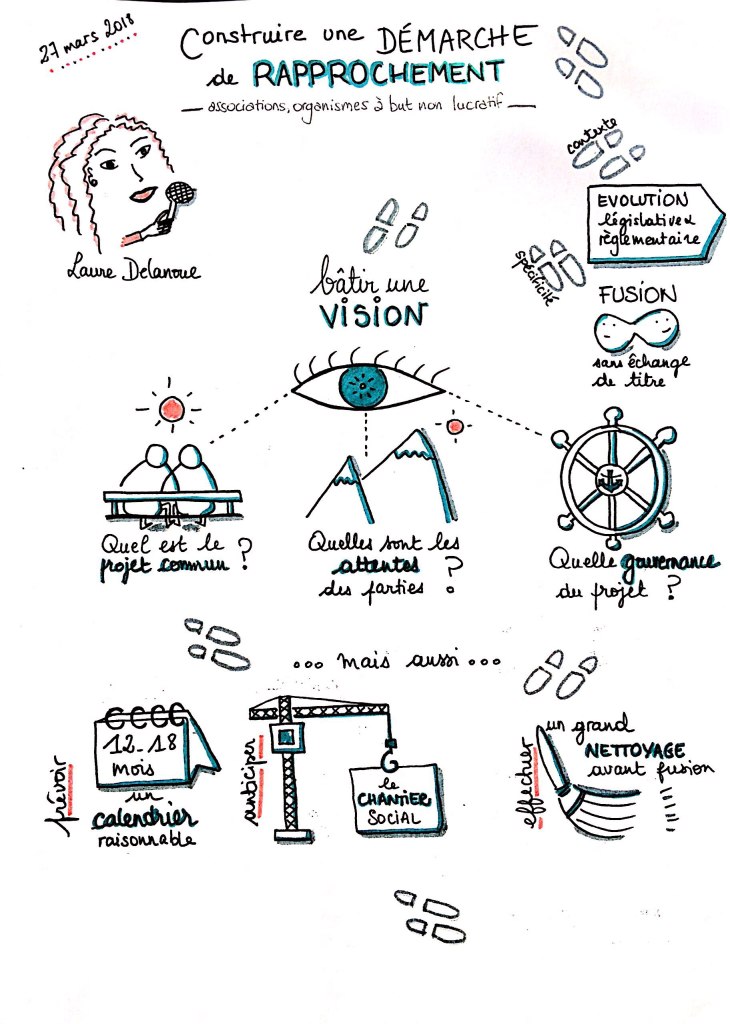 27 mars 2018
Construire une DÉMARCHE
de RAPPROCHEMENT
— associations, organismes à but non lucratif —
Laure Delanoue
contexte
EVOLUTION
législative &
règlementaire
spécificité
FUSION
sans échange
de titre
bâtir une
VISION
Quel est le
projet commun ?
Quelles sont les
attentes
des parties ?
Quelle gouvernance
du projet ?
... mais aussi ...
prévoir
12-18
mois
un
calendrier
raisonnable
anticiper
le
CHANTIER
SOCIAL
effectuer
un grand
NETTOYAGE
avant fusion